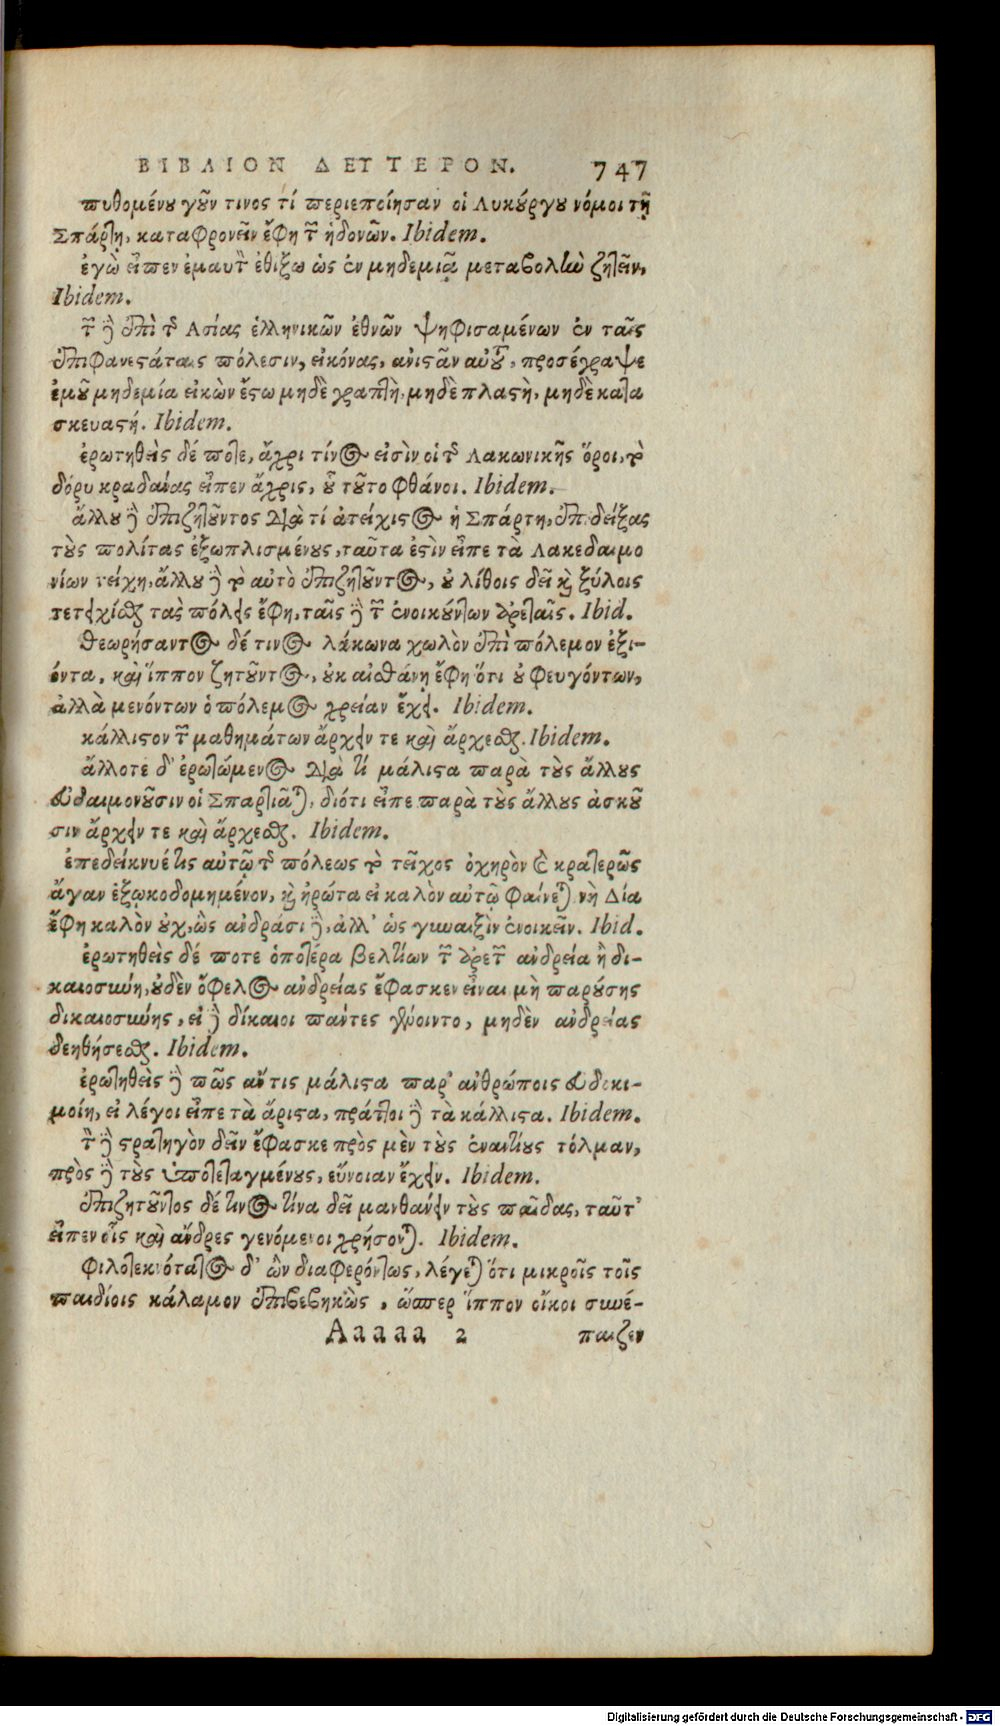 ΒΙΒΛΙΟΝ ΔΕΥΤΕΡΟΝ. 747
πυθομένου γοῦν τινος τί περιεποίησαν οἱ Λυκούργου νόμοι τῇ
Σπάρτῃ, καταφρονεῖν ἔφη τῶν ἡδονῶν. Ibidem.
ἐγὼ εἶπεν ἐμαυτὸν ἐθίζω ὡς ἐν μηδεμιᾷ μεταβολὴν ζητεῖν,
Ibidem.
τῶν δὲ ἐπὶ τῆς Ασίας ἑλληνικῶν ἐθνῶν ψηφισαμένων ἐν ταῖς
ἐπιφανεστάταις πόλεσιν, εἰκόνας, ἀνιστᾶν αὐτοῦ, προσέγραψε
ἐμοῦ μηδεμία εἰκὼν ἔστω μηδὲ γραπτὴ, μηδὲ πλαστὴ, μηδὲ κατα
σκευαστή. Ibidem.
ἐρωτηθεὶς δέ ποτε, ἄχρι τίνος εἰσὶν οἱ τῆς Λακωνικῆς ὅροι, τὸ
δόρυ κραδάνας εἶπεν ἄχρις, οὗ τοῦτο φθάνοι. Ibidem.
ἄλλου δὲ ἐπιζητοῦντος διὰ τί ἀτείχιστος ἡ Σπάρτη, ἐπιδείξας
τοὺς πολίτας ἐξωπλισμένους, ταῦτα ἐστὶν εἶπε τὰ Λακεδαιμο
νίων τείχη, ἄλλου δὲ τὸ αὐτὸ ἐπιζητοῦντος, οὐ λίθοις δεῖ καὶ ξύλοις
τετειχίσθαι τὰς πόλεις ἔφη, ταῖς δὲ τῶν ἐνοικούντων ἀρεταῖς. Ibid.
θεωρήσαντος δέ τινος λάκωνα χωλὸν ἐπὶ πόλεμον ἐξι-
όντα, καὶ ἵππον ζητοῦντος, οὐκ αἰσθάνη ἔφη ὅτι οὐ φευγόντων,
ἀλλὰ μενόντων ὁ πόλεμος χρείαν ἔχει. Ibidem.
κάλλιστον τῶν μαθημάτων ἄρχειν τε καὶ ἄρχεσθαι. Ibidem.
ἄλλοτε δ' ἐρωτώμενος διὰ τί μάλιστα παρὰ τοὺς ἄλλους
εὐδαιμονοῦσιν οἱ Σπαρτιᾶται, διότι εἶπε παρὰ τοὺς ἄλλους ἀσκοῦ
σιν ἄρχειν τε καὶ ἄρχεσθαι. Ibidem.
ἐπεδείκνυέ τις αὐτῷ τῆς πόλεως τὸ τεῖχος ὀχηρὸν καὶ κρατερῶς
ἄγαν ἐξῳκοδομημένον, καὶ ἠρώτα εἰ καλὸν αὐτῷ φαίνεται. νὴ Δία
ἔφη καλὸν οὐχ, ὡς ἀνδράσι δὲ, ἀλλ' ὡς γυναιξὶν ἐνοικεῖν. Ibid.
ἐρωτηθεὶς δέ ποτε ὁποτέρα βελτίων τῶν ἀρετῶν ἀνδρεία ἢ δι-
καιοσύνη, οὐδὲν ὄφελος ἀνδρείας ἔφασκεν εἶναι μὴ παρούσης
δικαιοσύνης, εἰ δὲ δίκαιοι πάντες γένοιντο, μηδὲν ἀνδρείας
δεηθήσεσθαι. Ibidem.
ἐρωτηθεὶς δὲ πῶς ἄν τις μάλιστα παρ' ἀνθρώποις εὐδοκι-
μοίη, εἰ λέγοι εἶπε τὰ ἄριστα, πράττοι δὲ τὰ κάλλιστα. Ibidem.
τὸν δὲ στρατηγὸν δεῖν ἔφασκε πρὸς μὲν τοὺς ἐναντίους τόλμαν,
πρὸς δὲ τοὺς ὑποτεταγμένους, εὔνοιαν ἔχειν. Ibidem.
ἐπιζητοῦντος δέ τινος τίνα δεῖ μανθάνειν τοὺς παῖδας, ταῦτ'
εἶπεν οἷς καὶ ἄνδρες γενόμενοι χρήσονται. Ibidem.
Φιλοτεκνότατος δ' ὢν διαφερόντως, λέγεται ὅτι μικροῖς τοῖς
παιδίοις κάλαμον ἐπιβεβηκὼς, ὥσπερ ἵππον οἴκοι συνέ-
Aaaaa 2 παιζεν
Digitalisierung gefördert durch die Deutsche Forschungsgemeinschaft - DFG